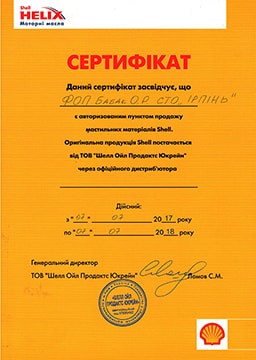 Shell
HELIX
Моторні масла
СЕРТИФІКАТ
Даний сертифікат засвідчує, що
ФОП Бабак О.Р. СТО „ІРПІНЬ"
є авторизованим пунктом продажу
мастильних матеріалів Shell.
Оригінальна продукція Shell постачається
від ТОВ "Шелл Ойл Продактс Юкрейн"
через офіційного дистриб'ютора
Дійсний:
з "07" 07 2017 року
по "07" 07 2018 року
Генеральний директор
ТОВ "Шелл Ойл Продактс Юкрейн"
Ломов С.М.
«ШЕЛЛ ОЙЛ
ПРОДАКТС ЮКРЕЙН»
Shell